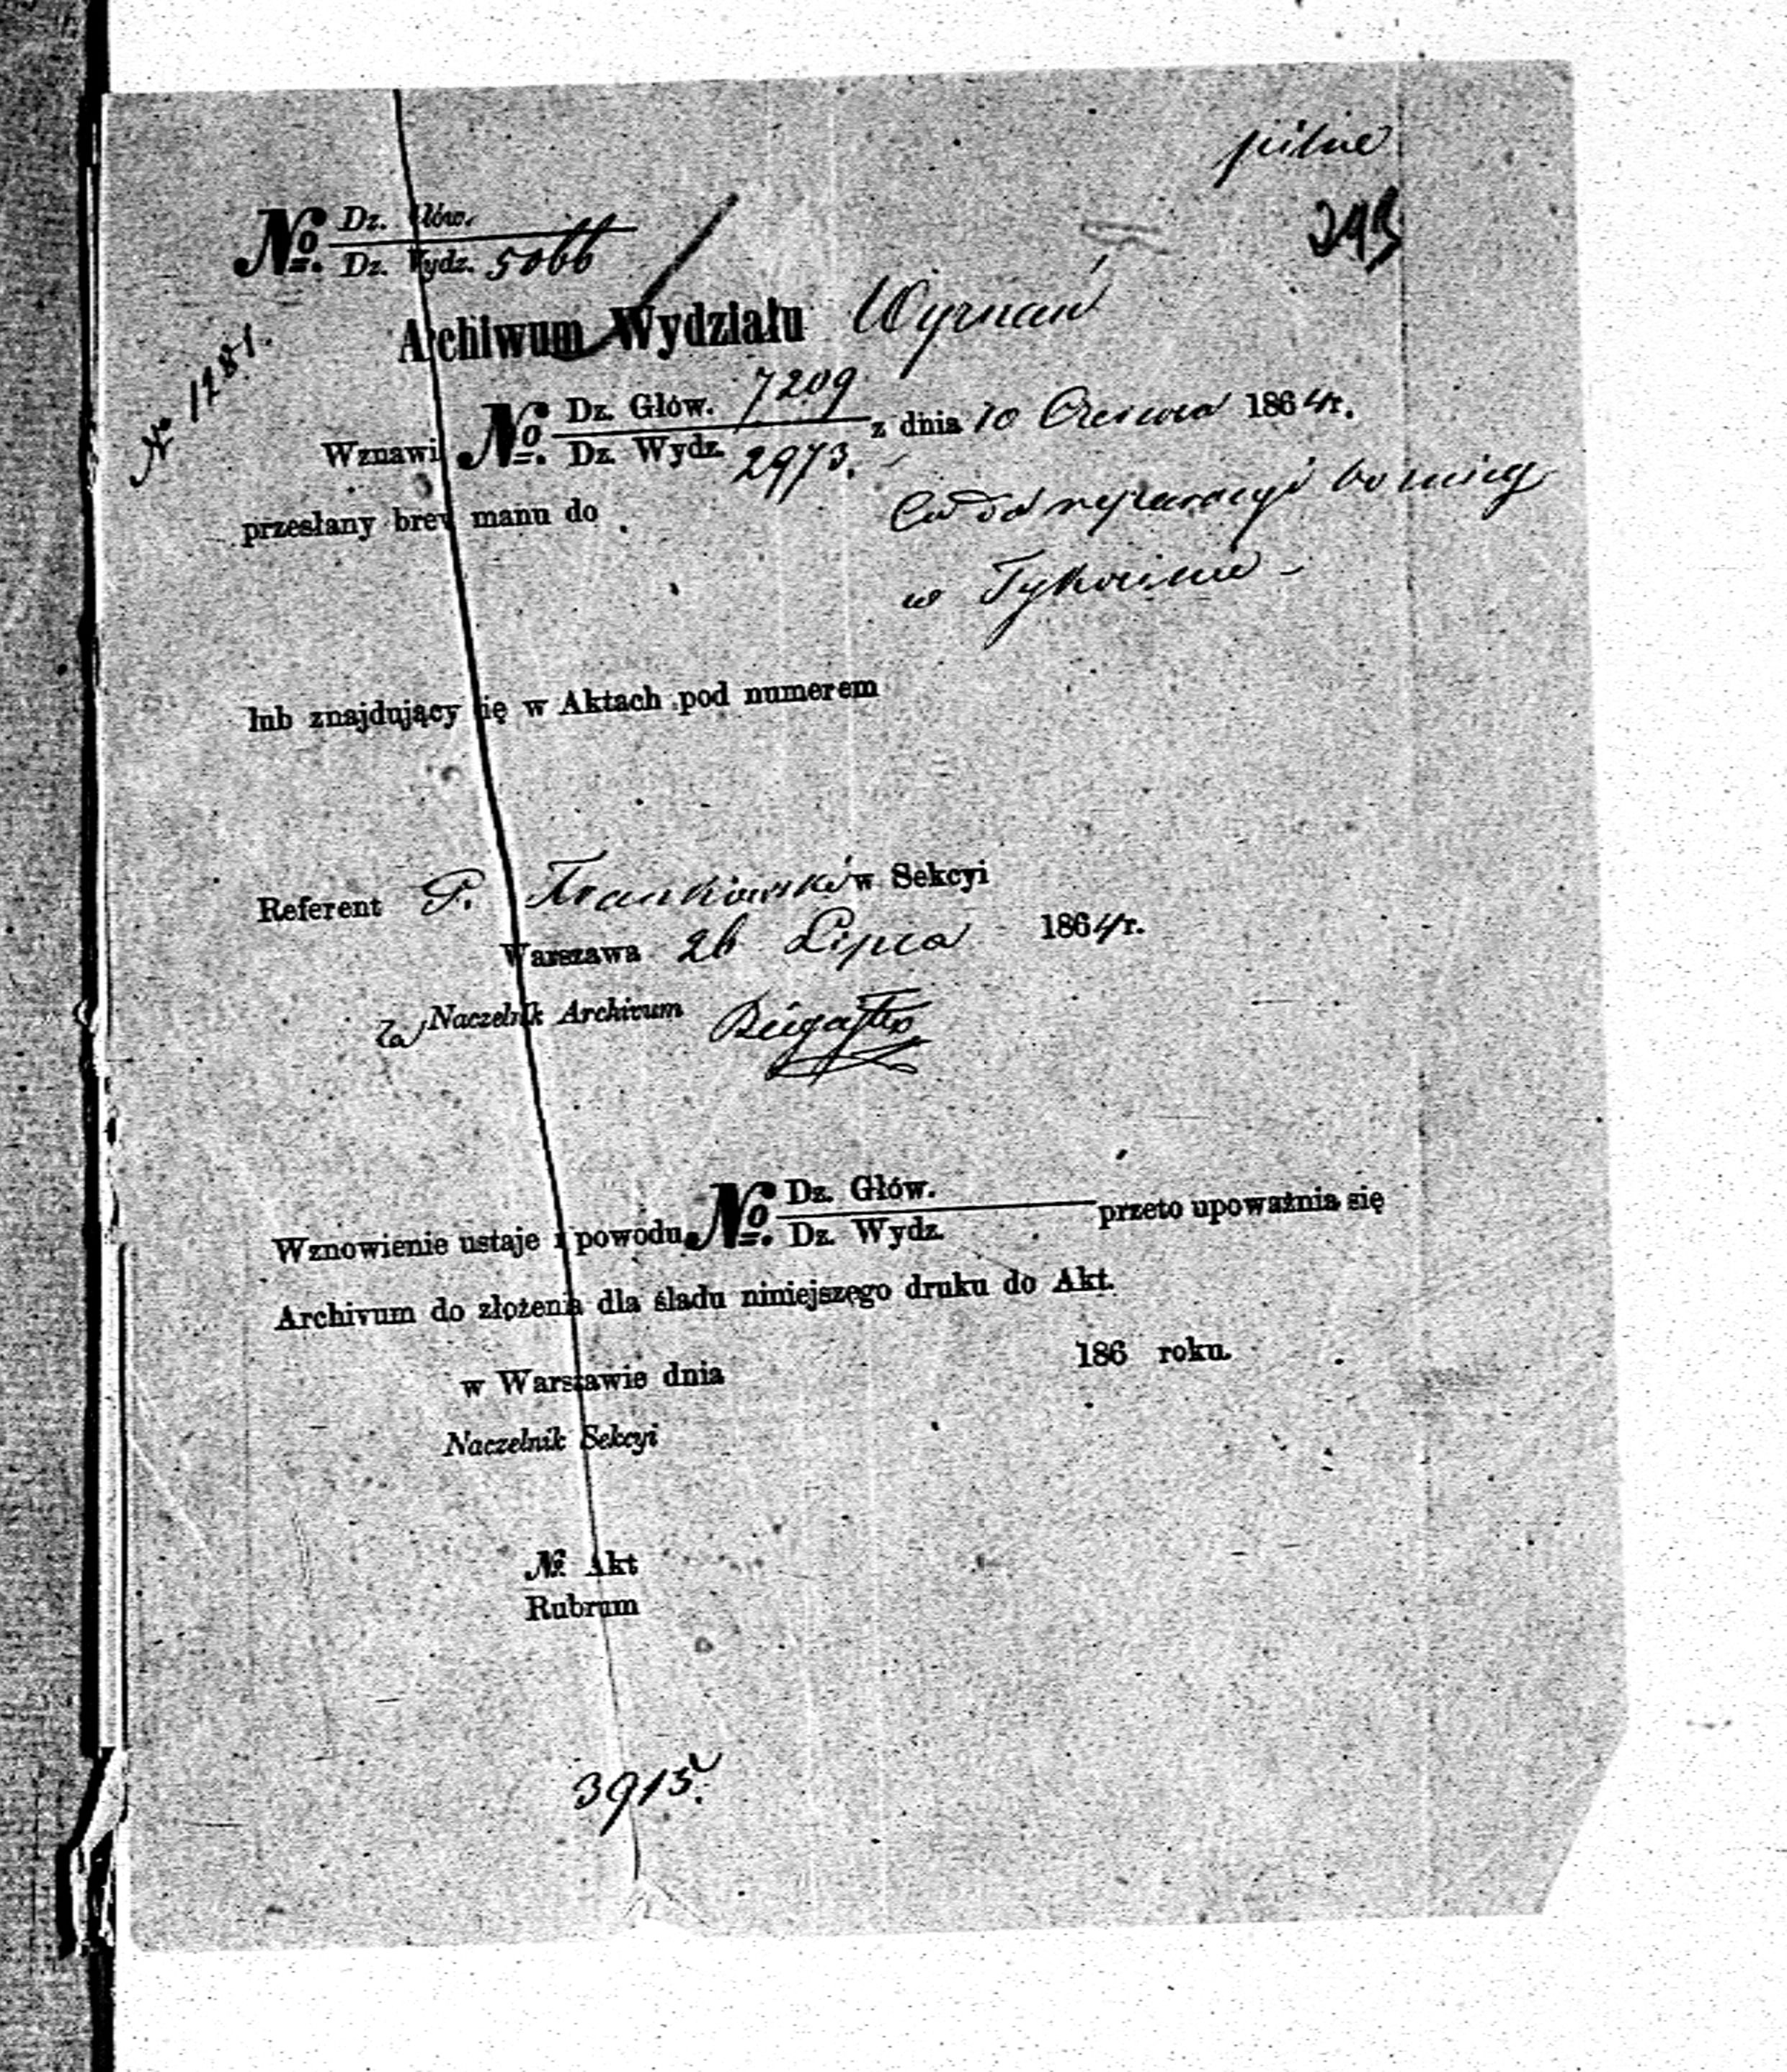 pilne
293
No. Dz. Głów.
Dz. Wydz. 5066
Archiwum Wydziału Wyznań
No 1281.
Wznawi No. Dz. Głów. 7209 z dnia 10 Czerwca 1864 r.
Dz. Wydz. 2973.
przesłany brevi manu do Co do reparacyi bożnicy
w Tykocinie -
lub znajdujący się w Aktach pod numerem
Referent P. Frankowski w Sekcyi
Warszawa 26 Lipca 1864 r.
za Naczelnik Archivum
Wznowienie ustaje z powodu No. Dz. Głów. przeto upoważnia się
Dz. Wydz.
Archivum do złożenia dla śladu niniejszego druku do Akt.
w Warszawie dnia 186 roku.
Naczelnik Sekcyi
No. Akt
Rubrum
3915.